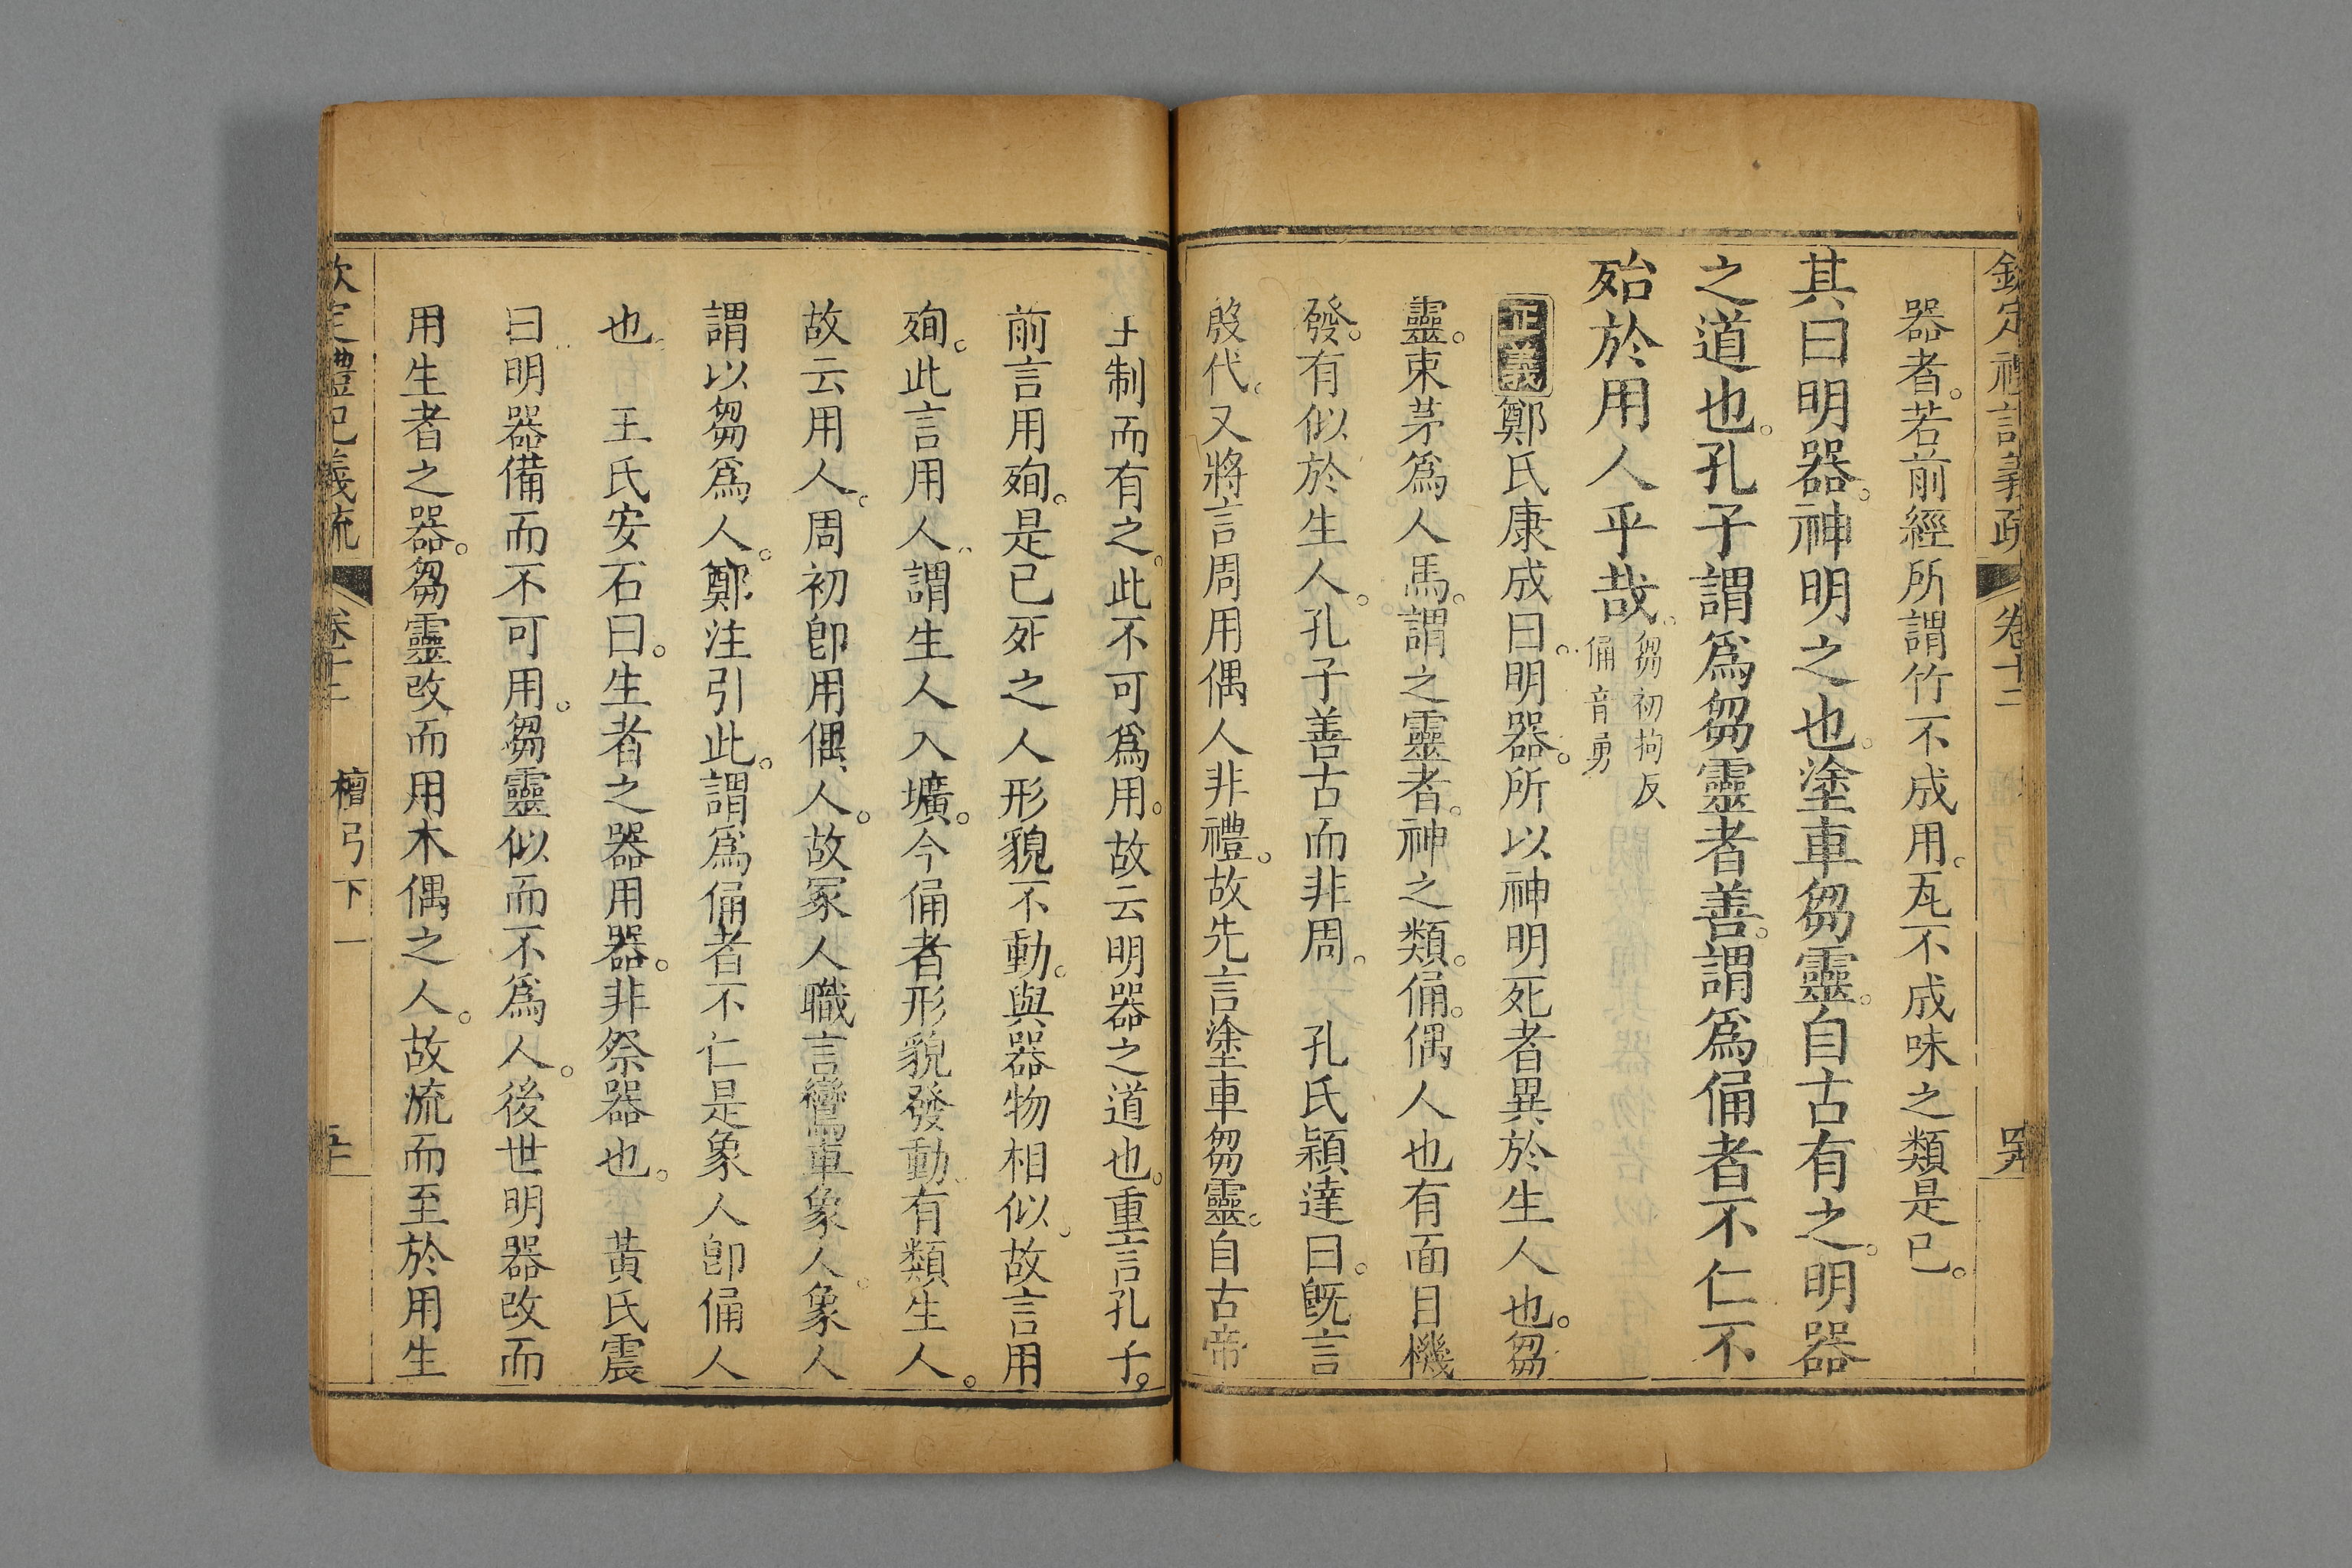 欽定禮記義疏 卷十二
器者。若前經所謂竹不成用。瓦不成味之類是已。
其曰明器。神明之也。塗車芻靈。自古有之。明器
之道也。孔子謂爲芻靈者善。謂爲俑者不仁。不
殆於用人乎哉。芻初拘反
俑音勇
正義鄭氏康成曰。明器。所以神明死者異於生人也。芻
靈。束茅爲人馬。謂之靈者。神之類。俑。偶人也有面目機
發。有似於生人。孔子善古而非周。 孔氏穎達曰。旣言
殷代。又將言周用偶人非禮。故先言塗車芻靈。自古帝
王制而有之。此不可爲用。故云明器之道也。重言孔子。
前言用殉。是已死之人形貌不動。與器物相似。故言用
殉。此言用人。謂生人入壙。今俑者形貌發動。有類生人。
故云用人。周初卽用偶人。故冢人職言鸞車象人。象人
謂以芻爲人。鄭注引此。謂爲俑者不仁是象人卽俑人
也。 王氏安石曰。生者之器用器。非祭器也。 黃氏震
曰明器備而不可用。芻靈似而不爲人。後世明器改而
用生者之器。芻靈改而用木偶之人。故流而至於用生
欽定禮記義疏 卷十二 檀弓下一